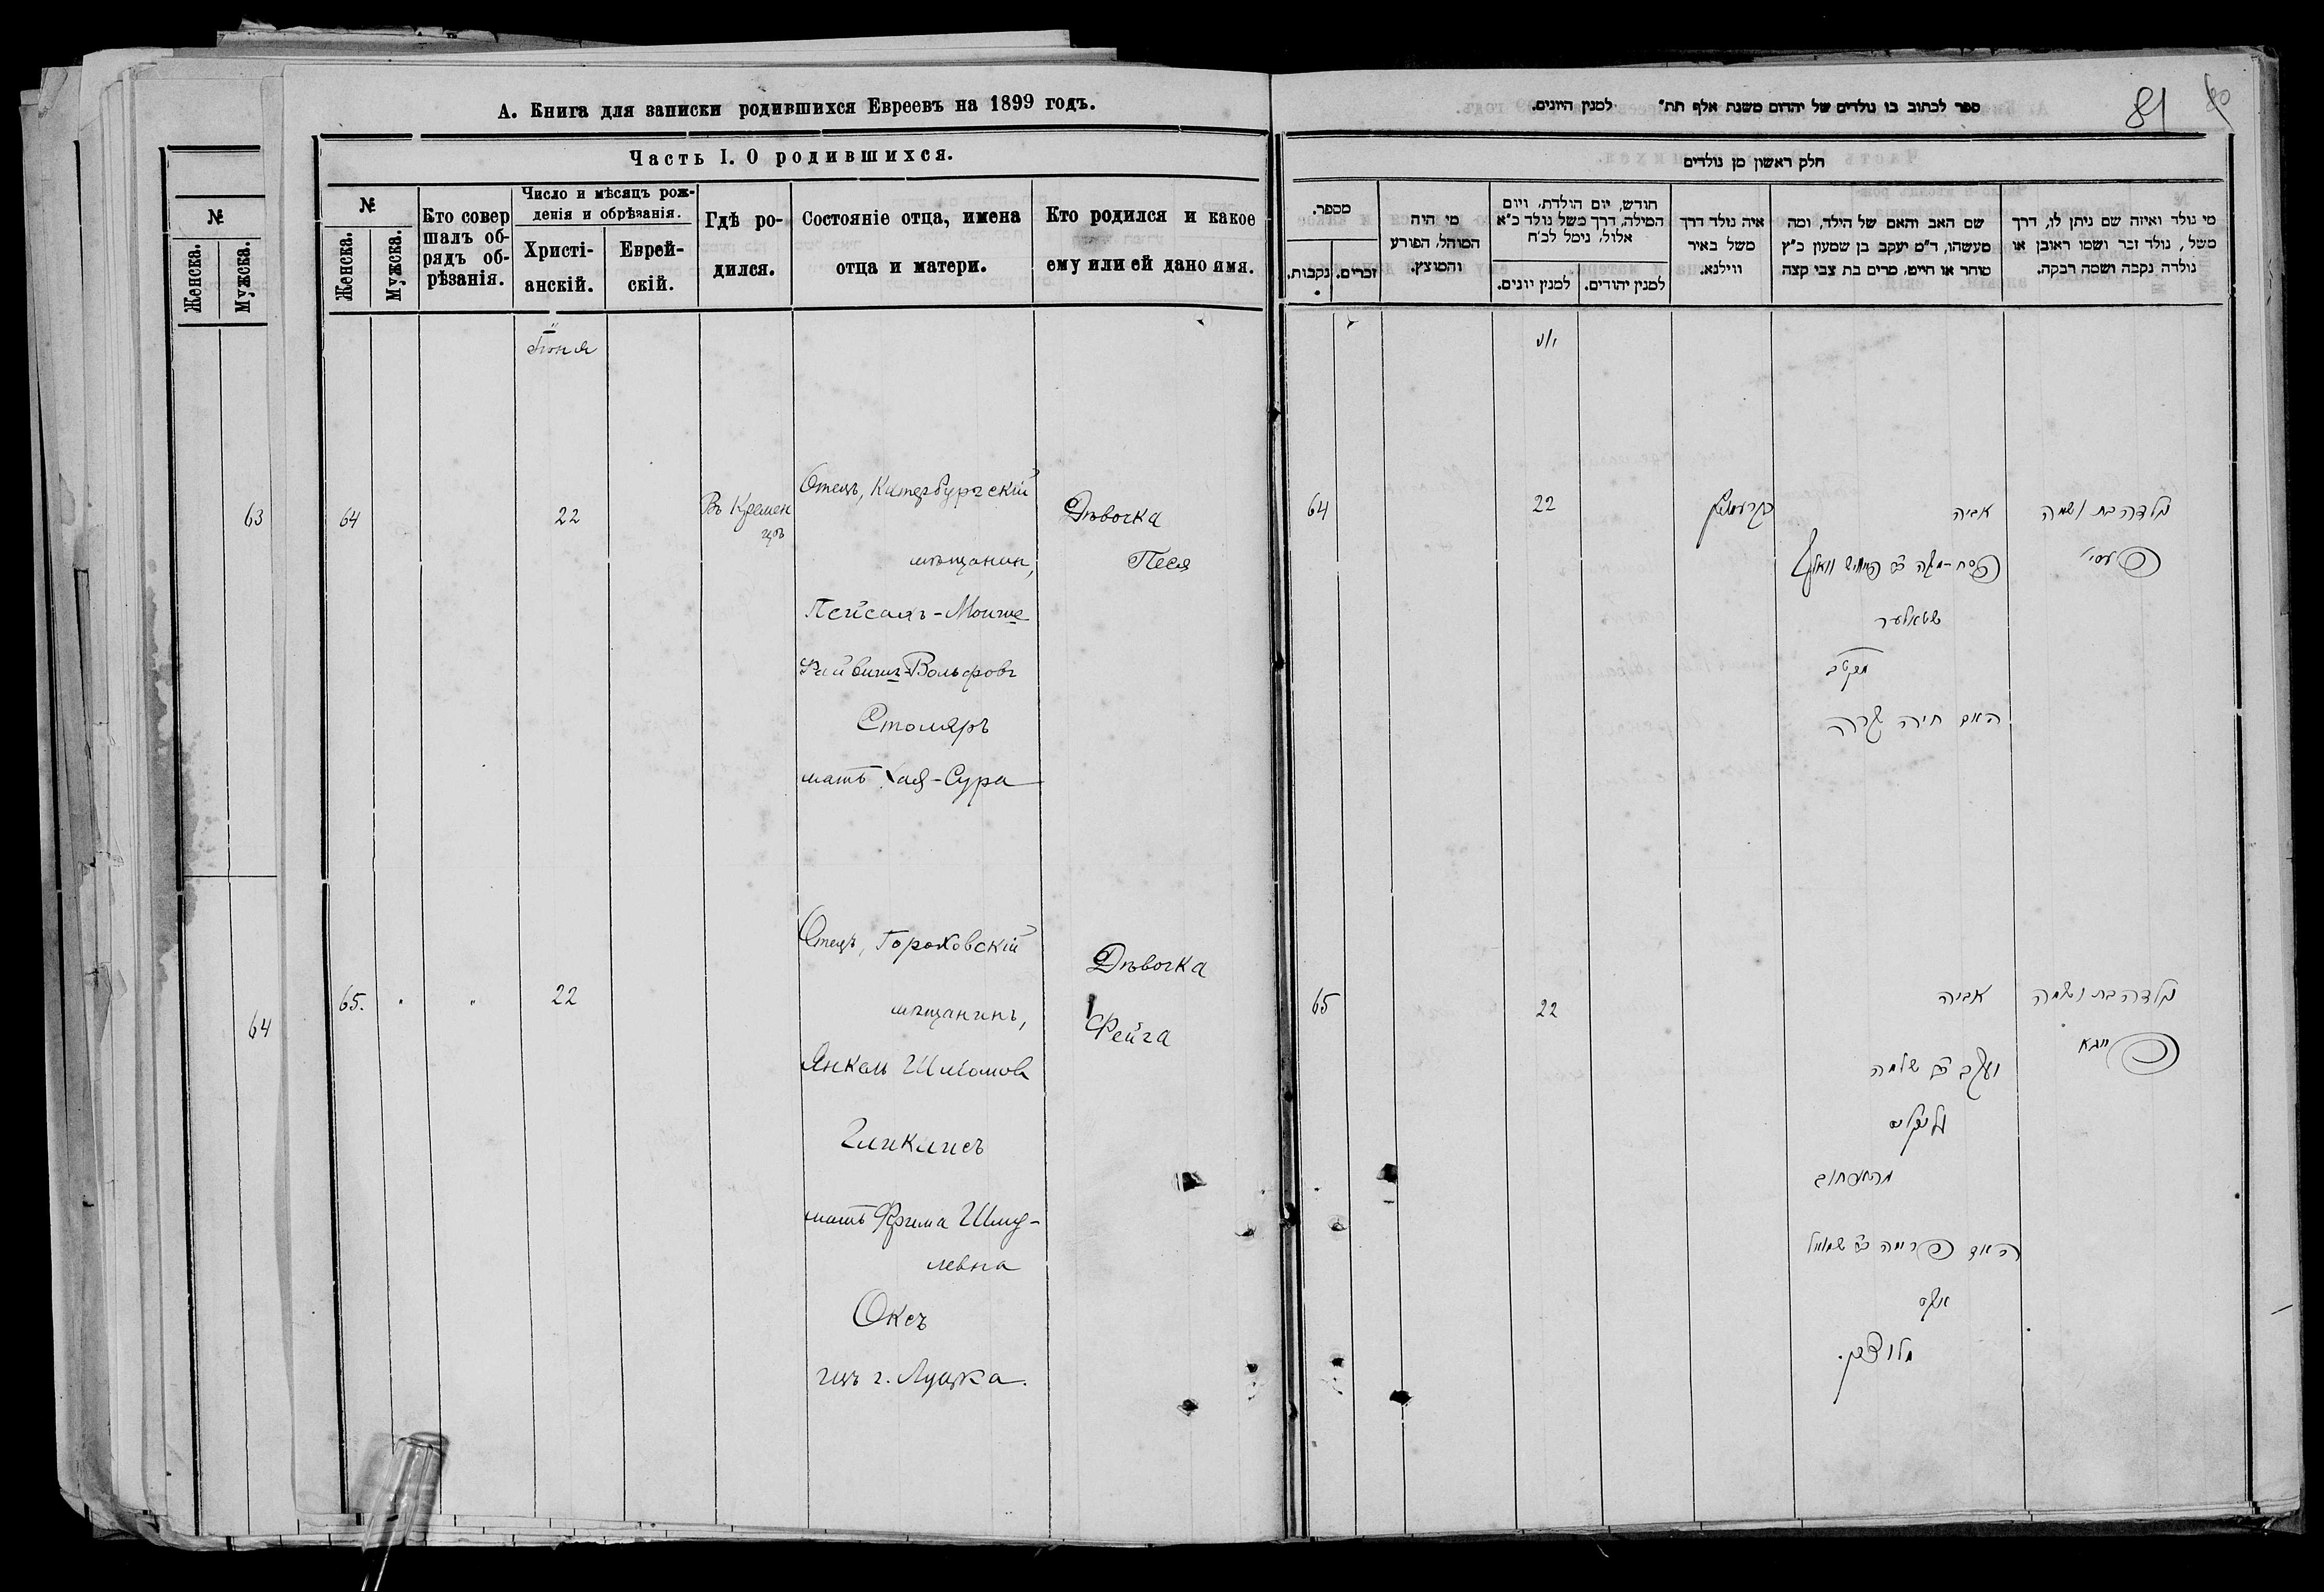 А. Книга для записки родившихся Евреевъ на 1899 годъ.
Часть I. О родившихся.
№
Женска.
Мужска.
63
64
№
Женска.
Мужска.
Кто совер
шалъ об-
рядъ об-
рѣзанія.
Число и мѣсяцъ рож-
денія и обрѣзанія.
Христі-
анскій.
Еврей-
скій.
Гдѣ ро-
дился.
Состояніе отца, имена
отца и матери.
Кто родился и какое
ему или ей дано имя.
Іюня
64
22
Въ Кремен
цѣ
Отецъ, Катербургскій
мѣщанин,
Пейсахъ-Мошше
Файвишъ-Вольфовъ
Столяръ
мать Хая-Сура
Дѣвочка
Песя
65.
22
Отецъ, Гороховскій
мѣщанинъ,
Янкель Шліомов
Гликлисъ
мать Фрима Шму-
левна
Оксъ
изъ г. Луцка.
Дѣвочка
Фейга
81
80
ספר לכתוב בו נולדים של יהדום משנת אלף תת״ למנין היונים.
חלק ראשון מן נולדים
מספר.
נקבות.
זכרים.
מי היה
המוהל, הפורע
והמוצץ.
חודש, יום הולדת, ויום
המילה, דרך משל נולד כ״א
אלול, נימל לכ״ח
למנין יונים.
למנין יהודים.
איה נולד דרך
משל באיר
ווילנא.
שם האב והאם של הילד, ומה
מעשהו, ד״מ יעקב בן שמעון כ״ץ
סוחר או חייט, מרים בת צבי קצה
מי נולד ואיזה שם ניתן לו, דרך
משל, נולד זכר ושמו ראובן או
נולדה נקבה ושמה רבקה.
יוני
64
22
אביה
נולדה בת ושמה
פעסי
פסח-משה
שטאלער
האם חיה שרה
65
22
אביה
נולדה בת ושמה
פייגא
יעקב ב״ר שלמה
גליקליס
האם פרימה ב״ר שמואל
אקס
מלוצק.